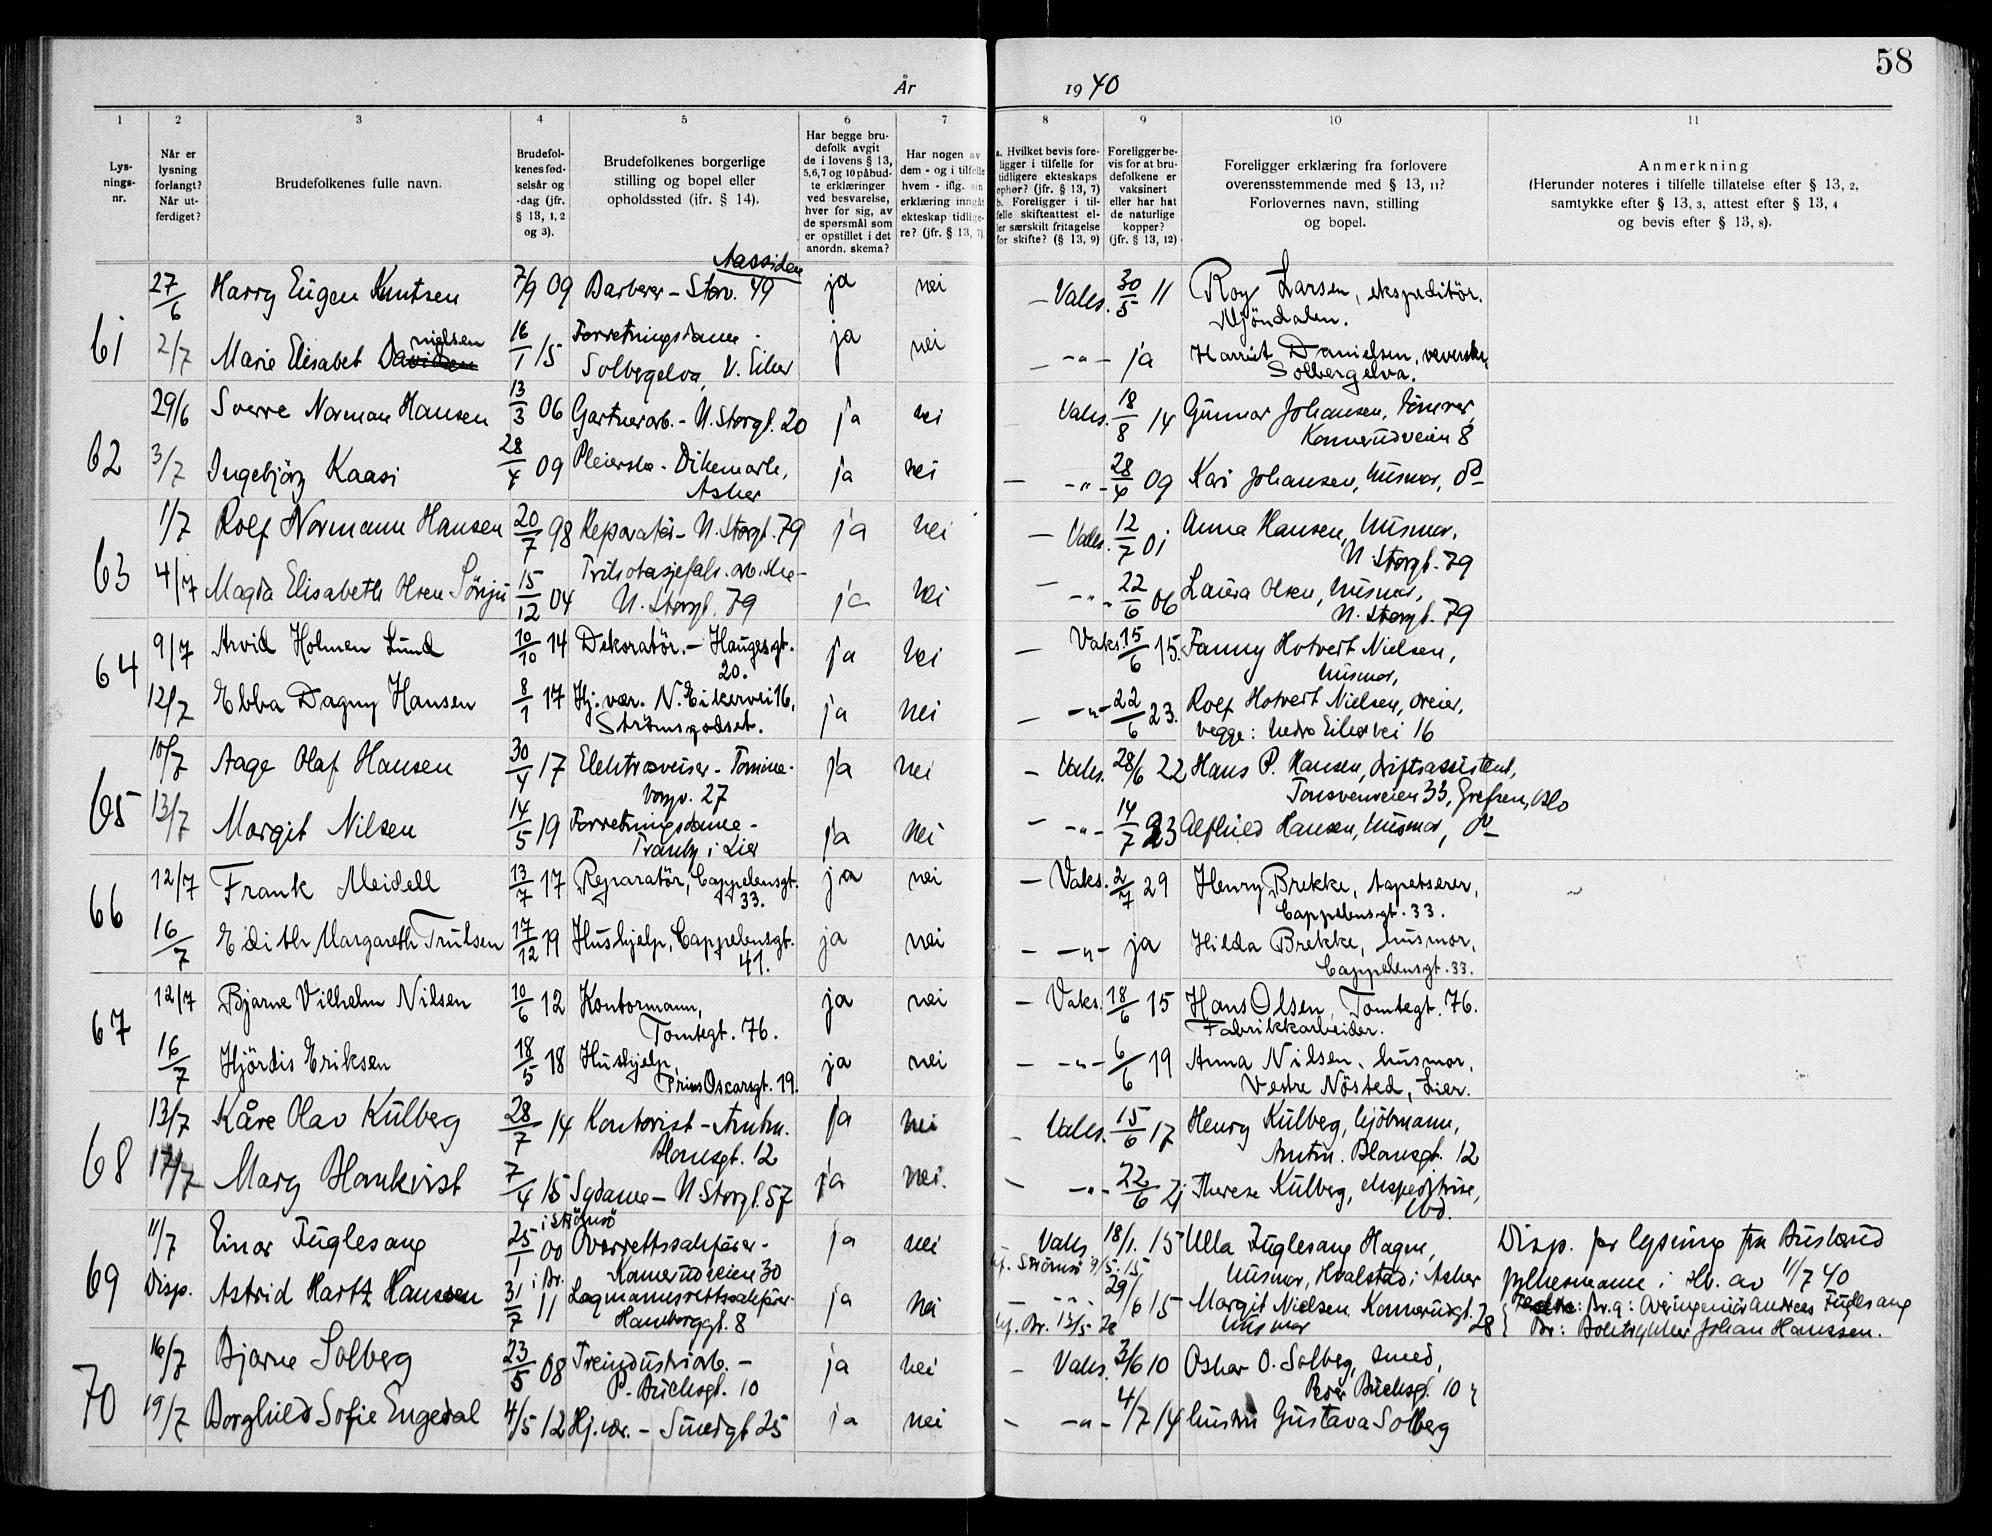 58
År 1940
1 2 3 4 5 6 7 8 9 10 11
Lysningsnr.
Når er lysning forlangt? Når utferdiget?
Brudefolkenes fulle navn.
Brudefolkenes fødselsår og -dag (jfr. § 13, 1, 2 og 3).
Brudefolkenes borgerlige stilling og bopel eller opholdssted (ifr. § 14).
Har begge brudefolk avgit de i lovens § 13, 5,6,7 og 10 påbudte erklæringer ved besvarelse, hver for sig, av de spørsmål som er opstillet i det anordn. skema?
Har nogen av dem - og i tilfelle hvem - iflg. sin erklæring inngåt ekteskap tidligere? (jfr. § 13, 7).
a. Hvilket bevis foreligger i tilfelle for tidligere ekteskaps ophør? (jfr. § 13, 7) b. Foreligger i tilfelle skifteattest eller særskilt fritagelse for skifte? (§ 13, 9)
Foreligger bevis for at brudefolkene er vaksinert eller har hat de naturlige kopper? (jfr. § 13, 12)
Foreligger erklæring fra forlovere overensstemmende med § 13, 11? Forlovernes navn, stilling og bopel.
Anmerkning (Herunder noteres i tilfelle tillatelse efter § 13, 2, samtykke efter § 13, 3, attest efter § 13, 4 og bevis efter § 13, 8).
Aassiden
27/6 Harry Eugen Knutsen 7/9 09 Barberer - Storv. 49 ja nei — Vaks. 30/5 11 Roy Larsen, ekspeditör.
Mjöndalen.
61 2/7 Marie Elisabet Davidsen nielsen 16/1 15 Forretningsdame - ja nei — -"- ja Harriet Danielsen, veverske
Solbergelva, N. Eiker Solbergelva.
29/6 Sverre Norman Hansen 13/3 06 Gartnerarb. - N. Storgt. 20 ja nei Vaks. 18/8 14 Gunnar Johansen, tömrer,
Konnerudveien 8
62 3/7 Ingebjörg Kaasi 28/4 09 Pleierske - Dikemark, ja nei — -"- 28/4 09 Kari Johansen, husmor, do
Asker
1/7 Rolf Normann Hansen 20/7 98 Reparatör - N. Storgt. 79 ja nei — Vaks. 12/7 01 Anna Hansen, husmor,
N. Storgt. 79
63 4/7 Magda Elisabeth Hoen Sörsju 15/12 04 Trikotasjefabr. arb.ske - ja nei — -"- 22/6 06 Laura Olsen, husmor,
N. Storgt. 79 N. Storgt. 79
64 9/7 Arvid Holmen Lund 10/10 14 Dekoratör. - Haugesgt. ja nei — Vaks. 15/6 15. Fanny Hotvert Nielsen,
20. husmor,
12/7 Ebba Dagny Hansen 8/1 17 Hj. vær. N. Eikervei 16, ja nei — -"- 22/6 23. Rolf Hotvert Nielsen, dreier,
Strömsgodset. begge: Nedre Eikervei 16
10/7 Aage Olaf Hansen 30/4 17 Elektrosveiser - Tomine- ja nei — Vaks. 28/6 22 Hans P. Hansen, driftsassistent,
borgv. 27 Tonsenveien 33, Grefsen, Oslo
65 13/7 Margit Nilsen 14/5 19 Forretningsdame - ja nei — -"- 14/7 23 Alfhild Hansen, husmor, do
Tranby i Lier
12/7 Frank Meidell 13/7 17 Reparatör, Cappelensgt. ja nei — Vaks. 2/7 29 Henry Brekke, tapetserer,
33. Cappelensgt. 33.
66 16/7 Edith Margareth Trulsen 17/12 19 Hushjelp, Cappelensgt. ja nei — -"- ja Hilda Brekke, husmor,
41. Cappelensgt. 33.
12/7 Bjarne Vilhelm Nilsen 10/6 12 Kontormann, ja nei — Vaks. 18/6 15 Hans Olsen, Tomtegt. 76.
Tomtegt. 76. Fabrikkarbeider.
67 16/7 Hjördis Eriksen 18/5 18 Hushjelp, ja nei — -"- 6/6 19 Anna Nilsen, husmor,
Prins Oscarsgt. 19. Vestre Nösted, Lier.
13/7 Kåre Olav Külberg 28/7 14 Kontorist - Amtm. ja nei — Vaks. 15/6 17 Henry Külberg, kjöbmann,
Blomsgt. 12 Amtm. Blomsgt. 12
68 17/7 Mary Hankvist 7/4 15 Sydame - N Storgt. 57 ja nei. — -"- 22/6 21 Therese Külberg, ekspeditrise,
ibd.
i Strömsö
11/7 Einar Fuglesang 25/1 00 Overrettssakfører - ja nei Vaks. 18/1. 15 Ulla Fuglesang Hagen, Disp. for lysning fra Buskerud
Konnerudveien 30 Strömsö 9/5. 15 husmor, Hvalstad i Asker fylkesmann i hb. av 11/7 40
69 Disp. Astrid Hartz Hanssen 31/7 11 i Br. Lagmannsrettssakfører - ja nei -"- 29/6 15 Margit Nielsen Konnerudgt. 28 Br.g: Overingeniør Andreas Fuglesang
Hamborggt. 8 Br. 13/5 28 husmor Br: Boktrykker Johan Hanssen.
16/7 Bjarne Solberg 23/5 08 Treindustriarb. - ja nei — Vaks. 3/6 10 Oskar O. Solberg, smed,
P. Buchsgt. 10 Peder Buchsgt. 10
70 19/7 Borghild Sofie Engedal 4/5 12 Hj.vær. - Smedgt 25 ja nei — -"- 4/7 14 hustru Gustava Solberg